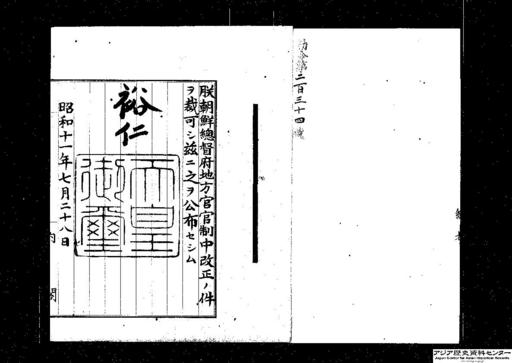 勅令第二百三十四號
朕朝鮮總督府地方官官制中改正ノ件
ヲ裁可シ玆ニ之ヲ公布セシム
裕仁
天皇
御璽
昭和十一年七月二十八日
内閣
アジア歴史資料センター
Japan Center for Asian Historical Records